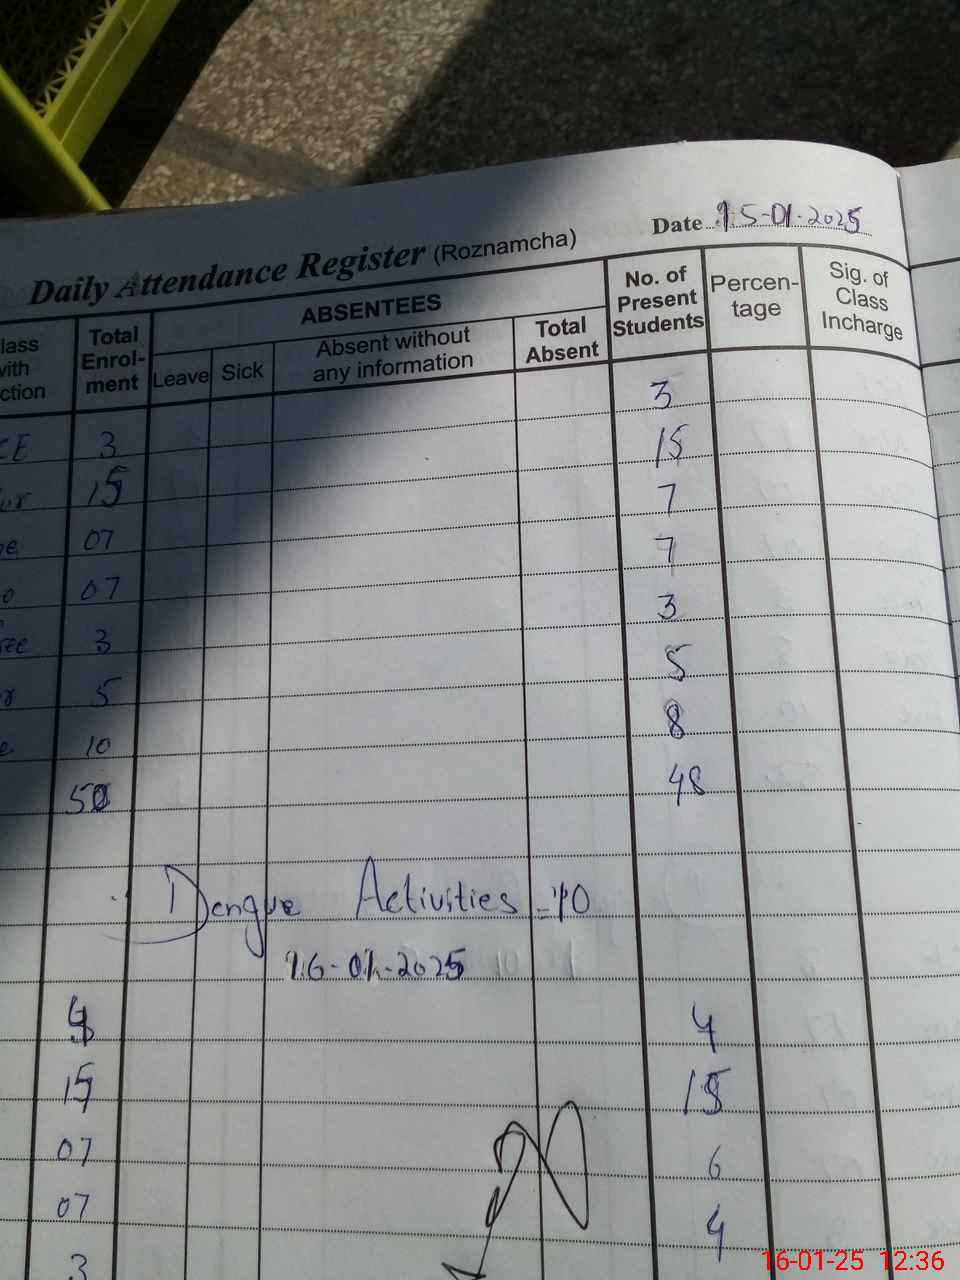 Date 15-01-2025
Daily Attendance Register (Roznamcha)
lass with ction
Total Enrol-ment
ABSENTEES
Leave
Sick
Absent without any information
Total Absent
No. of Present Students
Percen-tage
Sig. of Class Incharge
CE 3 3
ur 15 15
ne 07 7
o 07 7
ree 3 3
r 5 5
e 10 8
50 48
Dengue Activities = 10
16-01-2025
4 4
15 15
07 6
07 4
3
16-01-25 12:36